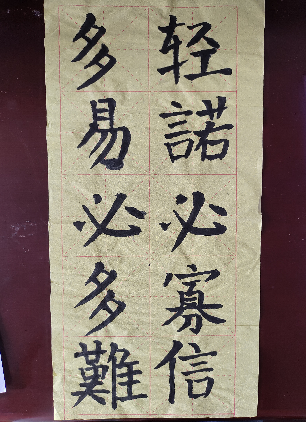 轻諾必寡信
多易必多難